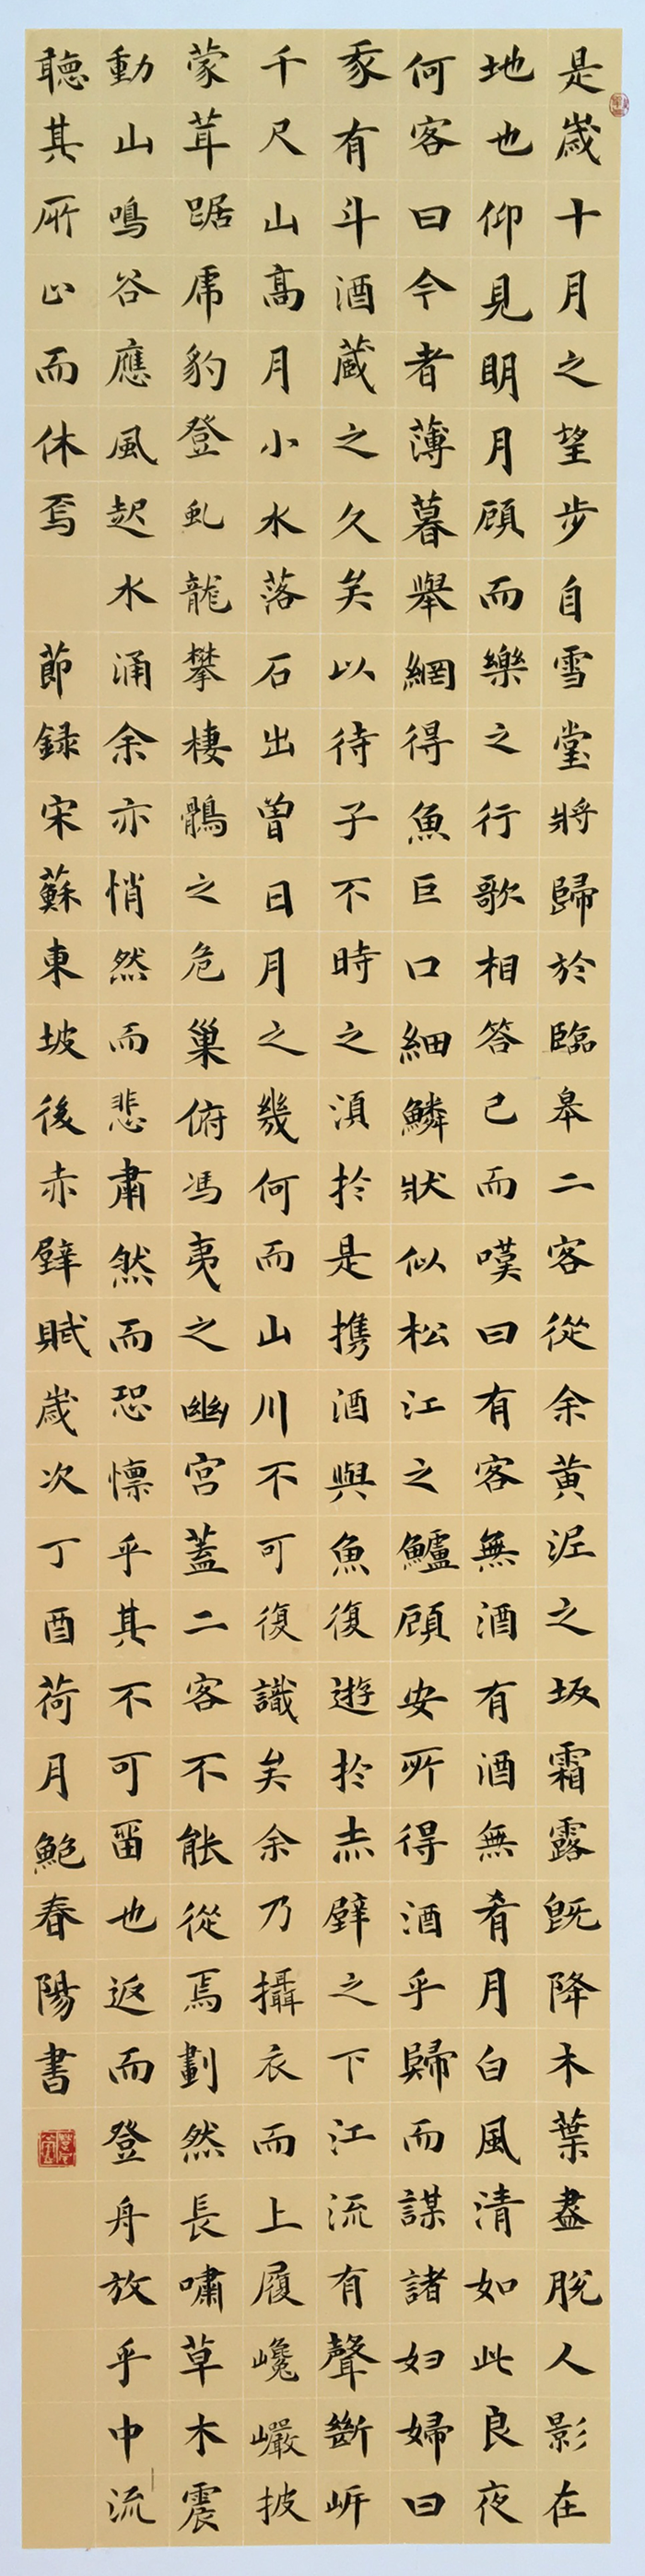 是歲十月之望步自雪堂將歸於臨皋二客從余黃泥之坂霜露既降木葉盡脫人影在
地也仰見明月顧而樂之行歌相答已而嘆曰有客無酒有酒無肴月白風清如此良夜
何客曰今者薄暮舉網得魚巨口細鱗狀似松江之鱸顧安所得酒乎歸而謀諸妇婦曰
我有斗酒藏之久矣以待子不時之湏於是携酒與魚復遊於赤壁之下江流有聲斷岍
千尺山高月小水落石出曾日月之幾何而山川不可復識矣余乃攝衣而上履巉巖披
蒙茸踞虎豹登虬龍攀棲鶻之危巢俯馮夷之幽宮蓋二客不能從焉劃然長嘯草木震
動山鳴谷應風起水涌余亦悄然而悲肅然而恐懍乎其不可留也返而登舟放乎中流
聽其所止而休焉 節録宋蘇東坡後赤壁賦歲次丁酉荷月鮑春陽書